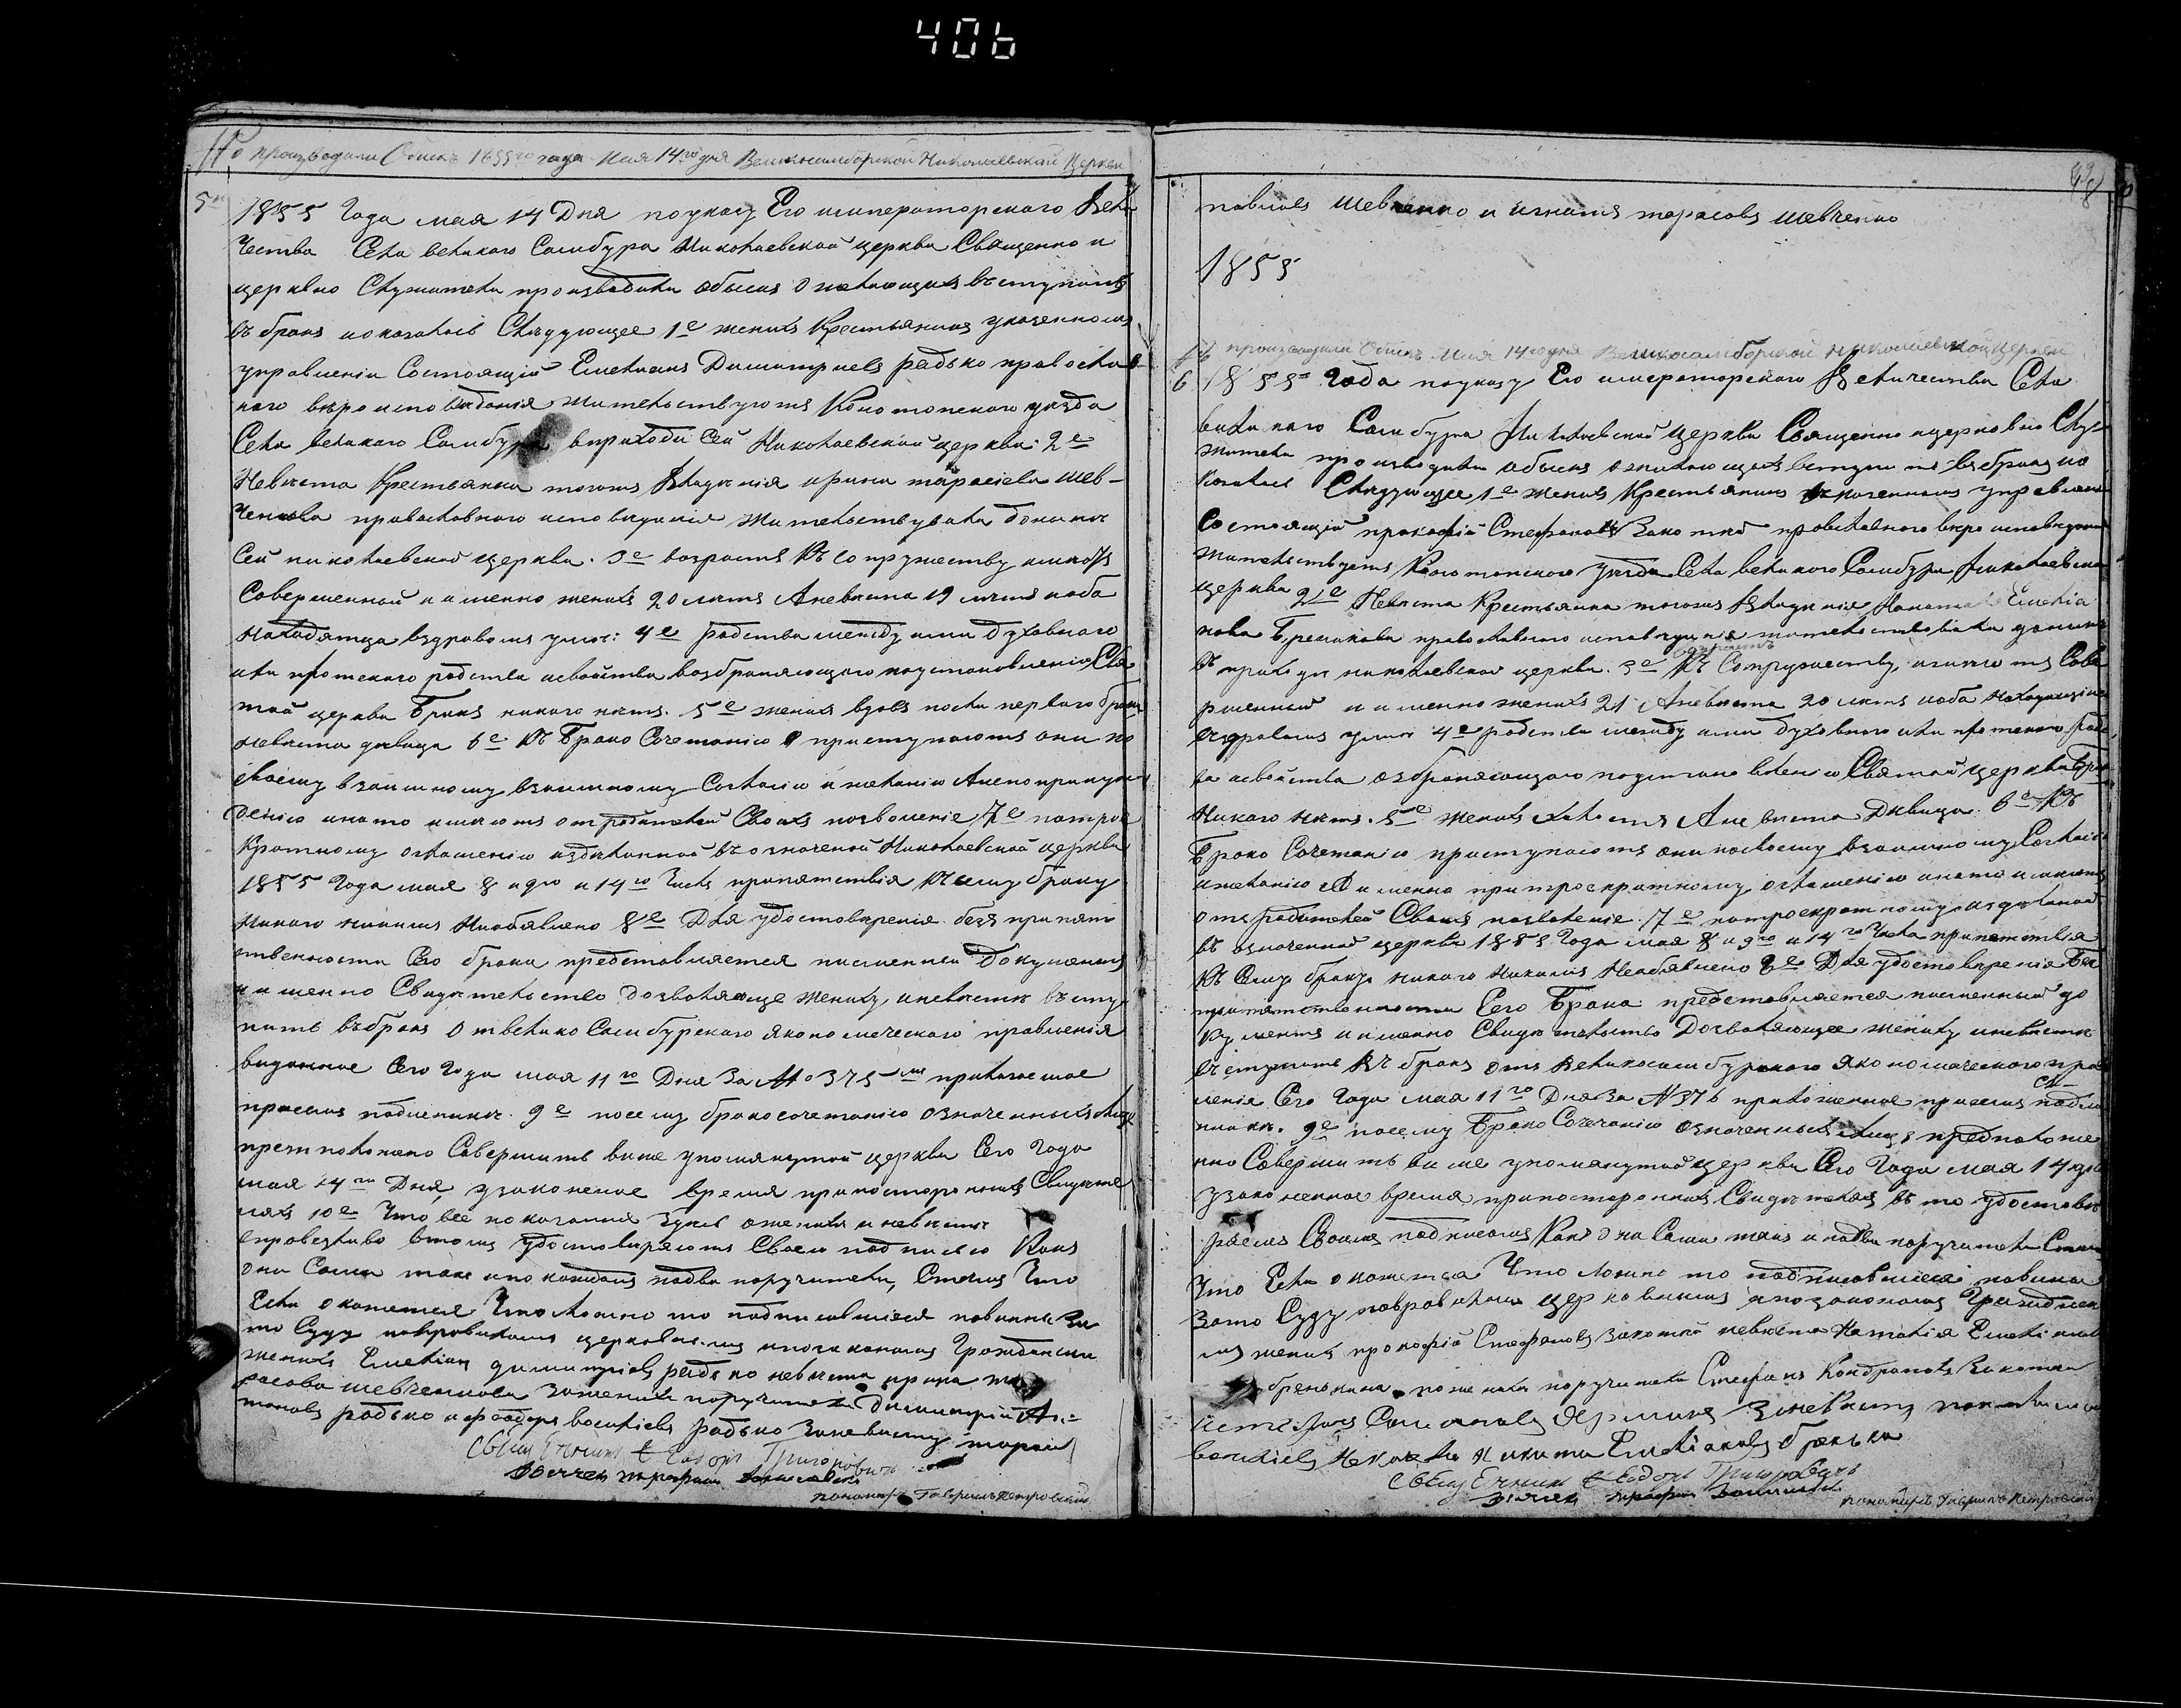 406
производили Обыскъ 1855го года Мая 14го дня Великосамборской Николаевской Церкви
5й 1855 Года мая 14 Дня по указу Его императорского Вели
чества Села великого Самбура Николаевской церкви Священно и
церквно Служители производили обыскъ о желающихъ вступить
въ бракъ и оказалось Следующее 1е женихъ Крестьянинъ указенномъ
управленіи Состоящій Емелианъ Димитриевъ радько православ
ного вероисповеданія жительствуютъ Конотопского уезда
Села великого Самбура вприходи Сей Николаевской церкви 2е
Невеста Крестьянка тогожъ Владенія ирина тарасіева шев-
ченкова православного исповеданія жительствувала доныне
Сей николаевской церкви. 3е возрастъ Къ Сопружеству имеютъ
Совершенной и именно женихъ 20 летъ Аневеста 19 летъ иоба
находятца вздравомъ уме: 4е родства между ими духовного
или плотского родства исвойства возбраняющого поустановленію Свя
той церкви Бракъ никого нетъ. 5е женихъ вдовъ посли первого брака
невеста девица 6е Къ Брако Сочетанію приступаютъ они по
своему взаимному взаимному Согласію и желанію Анепопринуж
денію инато имеютъ отродителей Своихъ позволеніе 7е потрое
Кратному оглашенію изделанной въ означеной Николаевской церкви
1855 Года мая 8 и 9го и 14го Числъ препятствія Ксему браку
никого никимъ Необявлено 8е Для удостоверенія безъ препят
ственности Сего брака представляется писменные Документъ
и именно Свидетельство дозволяюще жениху иневесте всту
пить въбракъ отвеликоСамбурского якономического правленія
виданное Сего Года мая 11го Дня За №375мъ прилагаемое
приемъ подленике. 9е посему бракосочетанію означенныхъ лицъ
претположено Совершить више упомянутой церкви Сего Года
мая 14го Дня узаконеное время припосторонихъ Свидете
ляхъ 10е Что все показанное Здесь оженихе и невесте
справедливо втомъ удостоверяютъ Своею подписью Какъ
они Сами такъ ипокаждомъ подва поручителя, Стемъ Что
Если окажется Что Ложно то подписавшіеся повинны за
то Суду поправиламъ церковнымъ ипозаконамъ Гражданским
женихъ Емелианъ димитріевъ радько невеста ирина та
расова шевченкова Заженихе поручители Димитрій
радько ифеодоръ василіевъ радько Заневесту тарасій
Священникъ Феодоръ Григоровичъ
пономарь Гавриилъ Петровскій
павловъ шевченко и игнатъ тарасовъ шевченко
1855
производили Обыскъ Мая 14го дня Великосамборской Николаевской Церкви
6 1855го Года поуказу Его императорского Величества Села
великого Самбура Николаевской Церкви Священно ицерковно Слу
жители производили обыскъ ожелающихъ вступить вбракъ ио
казалось Следующее 1е женихъ Крестьянинъ указенномъ управлени
Состоящій прокофій Стефановъ Закотній православного вероисповедания
жительствуетъ Конотопского уезда Села великого Самбура Николаевской
церкви 2е Невеста Крестьянка тогожъ Владенія Наталія Емелія
нова православного исповеданія жительствовала доныне
въ приходе николаевской церкви. 3е возрастъ Къ Сопружеству, имеютъ Сове
ршенный и именно женихъ 21 Аневеста 20 летъ иоба находящіеся
вздравомъ уме 4е родства между ими духовного или плотского родс
ва исвойства возбраняющого поустановленію Святой церкви Бракъ
Никого нетъ. 5е женихъ холостъ Аневеста Девица. 6е Къ
Брако Сочетанію приступаютъ они посвоему взаимному Согласію
ижеланію именно при троекратному оглашенію инато имеютъ
отъ родителей Своихъ позволеніе. 7е потроекратному изделаной
въ означенной церкви 1855 Года мая 8 и 9го и 14го Числа препятствія
Къ Сему браку никого никимъ Необявлено 8е Для удостоверенія Без
препятственности Сего Брака представляется писменный до
кументъ и именно Свидетельство Дозволяющее жениху иневесте
вступить Въ бракъ отъ Великосамбурского якономического прав
ленія Сего Года мая 11го Дня За №376 приложенное приемъ подле
нике. 9е посему Брако Сочетанію означенныхъ лицъ предположе
нно Совершить више упомянутой церкви Сего Года мая 14 дня
узаконенное время припосторонихъ Свидетеляхъ въ то удостове
ряемъ Своимъ подписомъ Какъ они Сами такъ иподва поручителя Стемъ
Что Если окажется Что ложно то подписавшіеся повинны
зато Суду поправиламъ церковнымъ ипозаконамъ Граждански
мъ женихъ прокофій Стефановъ закотній невеста Наталія Емеліанов
поженихе поручители Стефанъ Кондратовъ Закотний
василіевъ Никита Емеліановъ
Священникъ Феодоръ Григоровичъ
пономарь Гавриилъ Петровскій